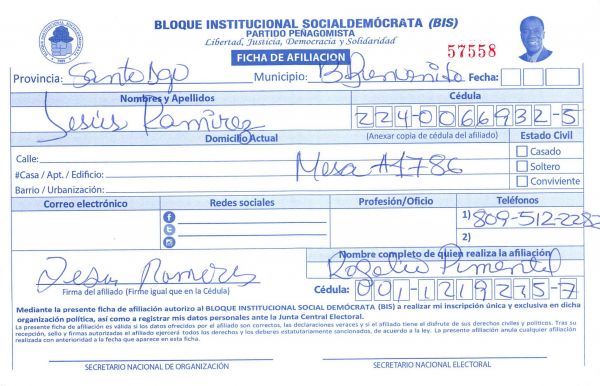 BLOQUE INSTITUCIONAL SOCIALDEMÓCRATA (BIS)
PARTIDO PEÑAGOMISTA
Libertad, Justicia, Democracia y Solidaridad
FICHA DE AFILIACION
57558
Provincia: Santo Dgo Municipio: Fecha:
Nombres y Apellidos Cédula
Jesús Ramirez 224-0066932-5
Domicilio Actual (Anexar copia de cédula del afiliado) Estado Civil
Calle: Casado
Mesa #1786
#Casa / Apt. / Edificio: Soltero
Barrio / Urbanización: Conviviente
Correo electrónico Redes sociales Profesión/Oficio Teléfonos
1) 809-512-2282
2)
Nombre completo de quien realiza la afiliación
Jesus Ramires Rogelio Pimentel
Firma del afiliado (Firme igual que en la Cédula) Cédula: 001-1219235-7
Mediante la presente ficha de afiliación autorizo al BLOQUE INSTITUCIONAL SOCIAL DEMÓCRATA (BIS) a realizar mi inscripción única y exclusiva en dicha
organización política, así como a registrar mis datos personales ante la Junta Central Electoral.
La presente ficha de afiliación es válida si los datos ofrecidos por el afiliado son correctos, las declaraciones veraces y si el afiliado tiene el disfrute de sus derechos civiles y políticos. Tras su
recepción, sello y firmas autorizadas el afiliado ejercerá todos los derechos y los deberes estatutariamente sancionados, de acuerdo a la ley. La presente afiliación anula cualquier afiliación
realizada con anterioridad a la fecha que aparece en esta ficha.
SECRETARIO NACIONAL DE ORGANIZACIÓN SECRETARIO NACIONAL ELECTORAL